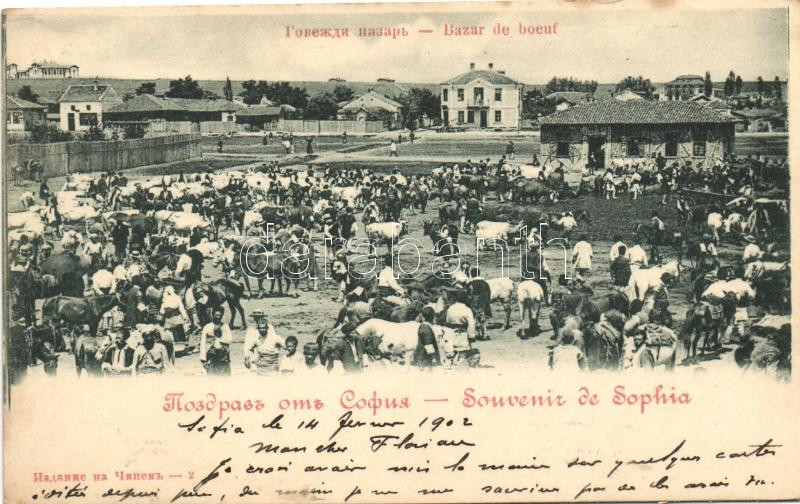 Говежди пазарь — Bazar de boeuf
darabanth.com
Поздравъ отъ София — Souvenir de Sophia
Sofia le 14 fevrier 1902
Mon cher Florian
Je crois avoir mis la main sur quelques cartes
éditées depuis peu, du
Издание на Чипевъ — 2